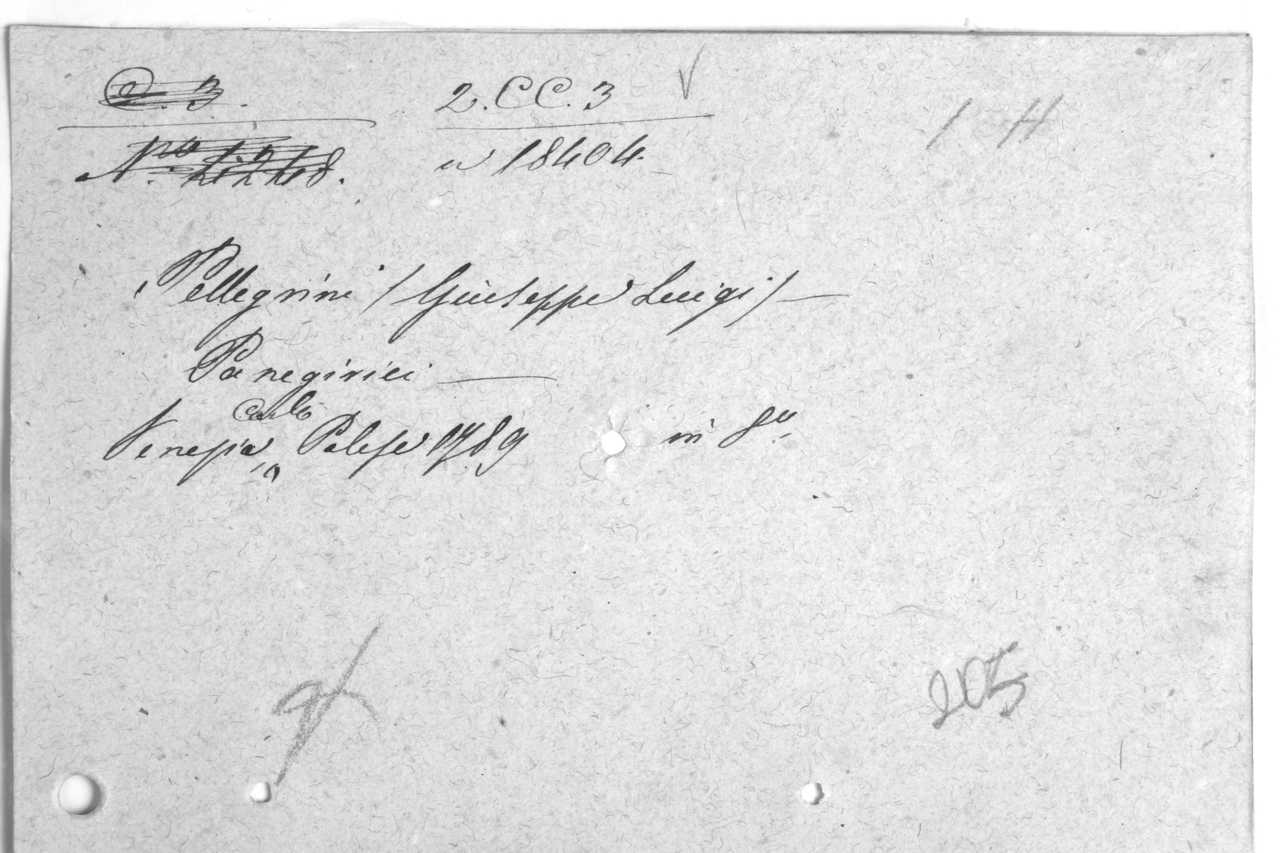 2.CC.3
18404.
Pellegrini / Giuseppe Luigi /
Panegirici
Carlo
Venezia Palese 1789 in 8º
205